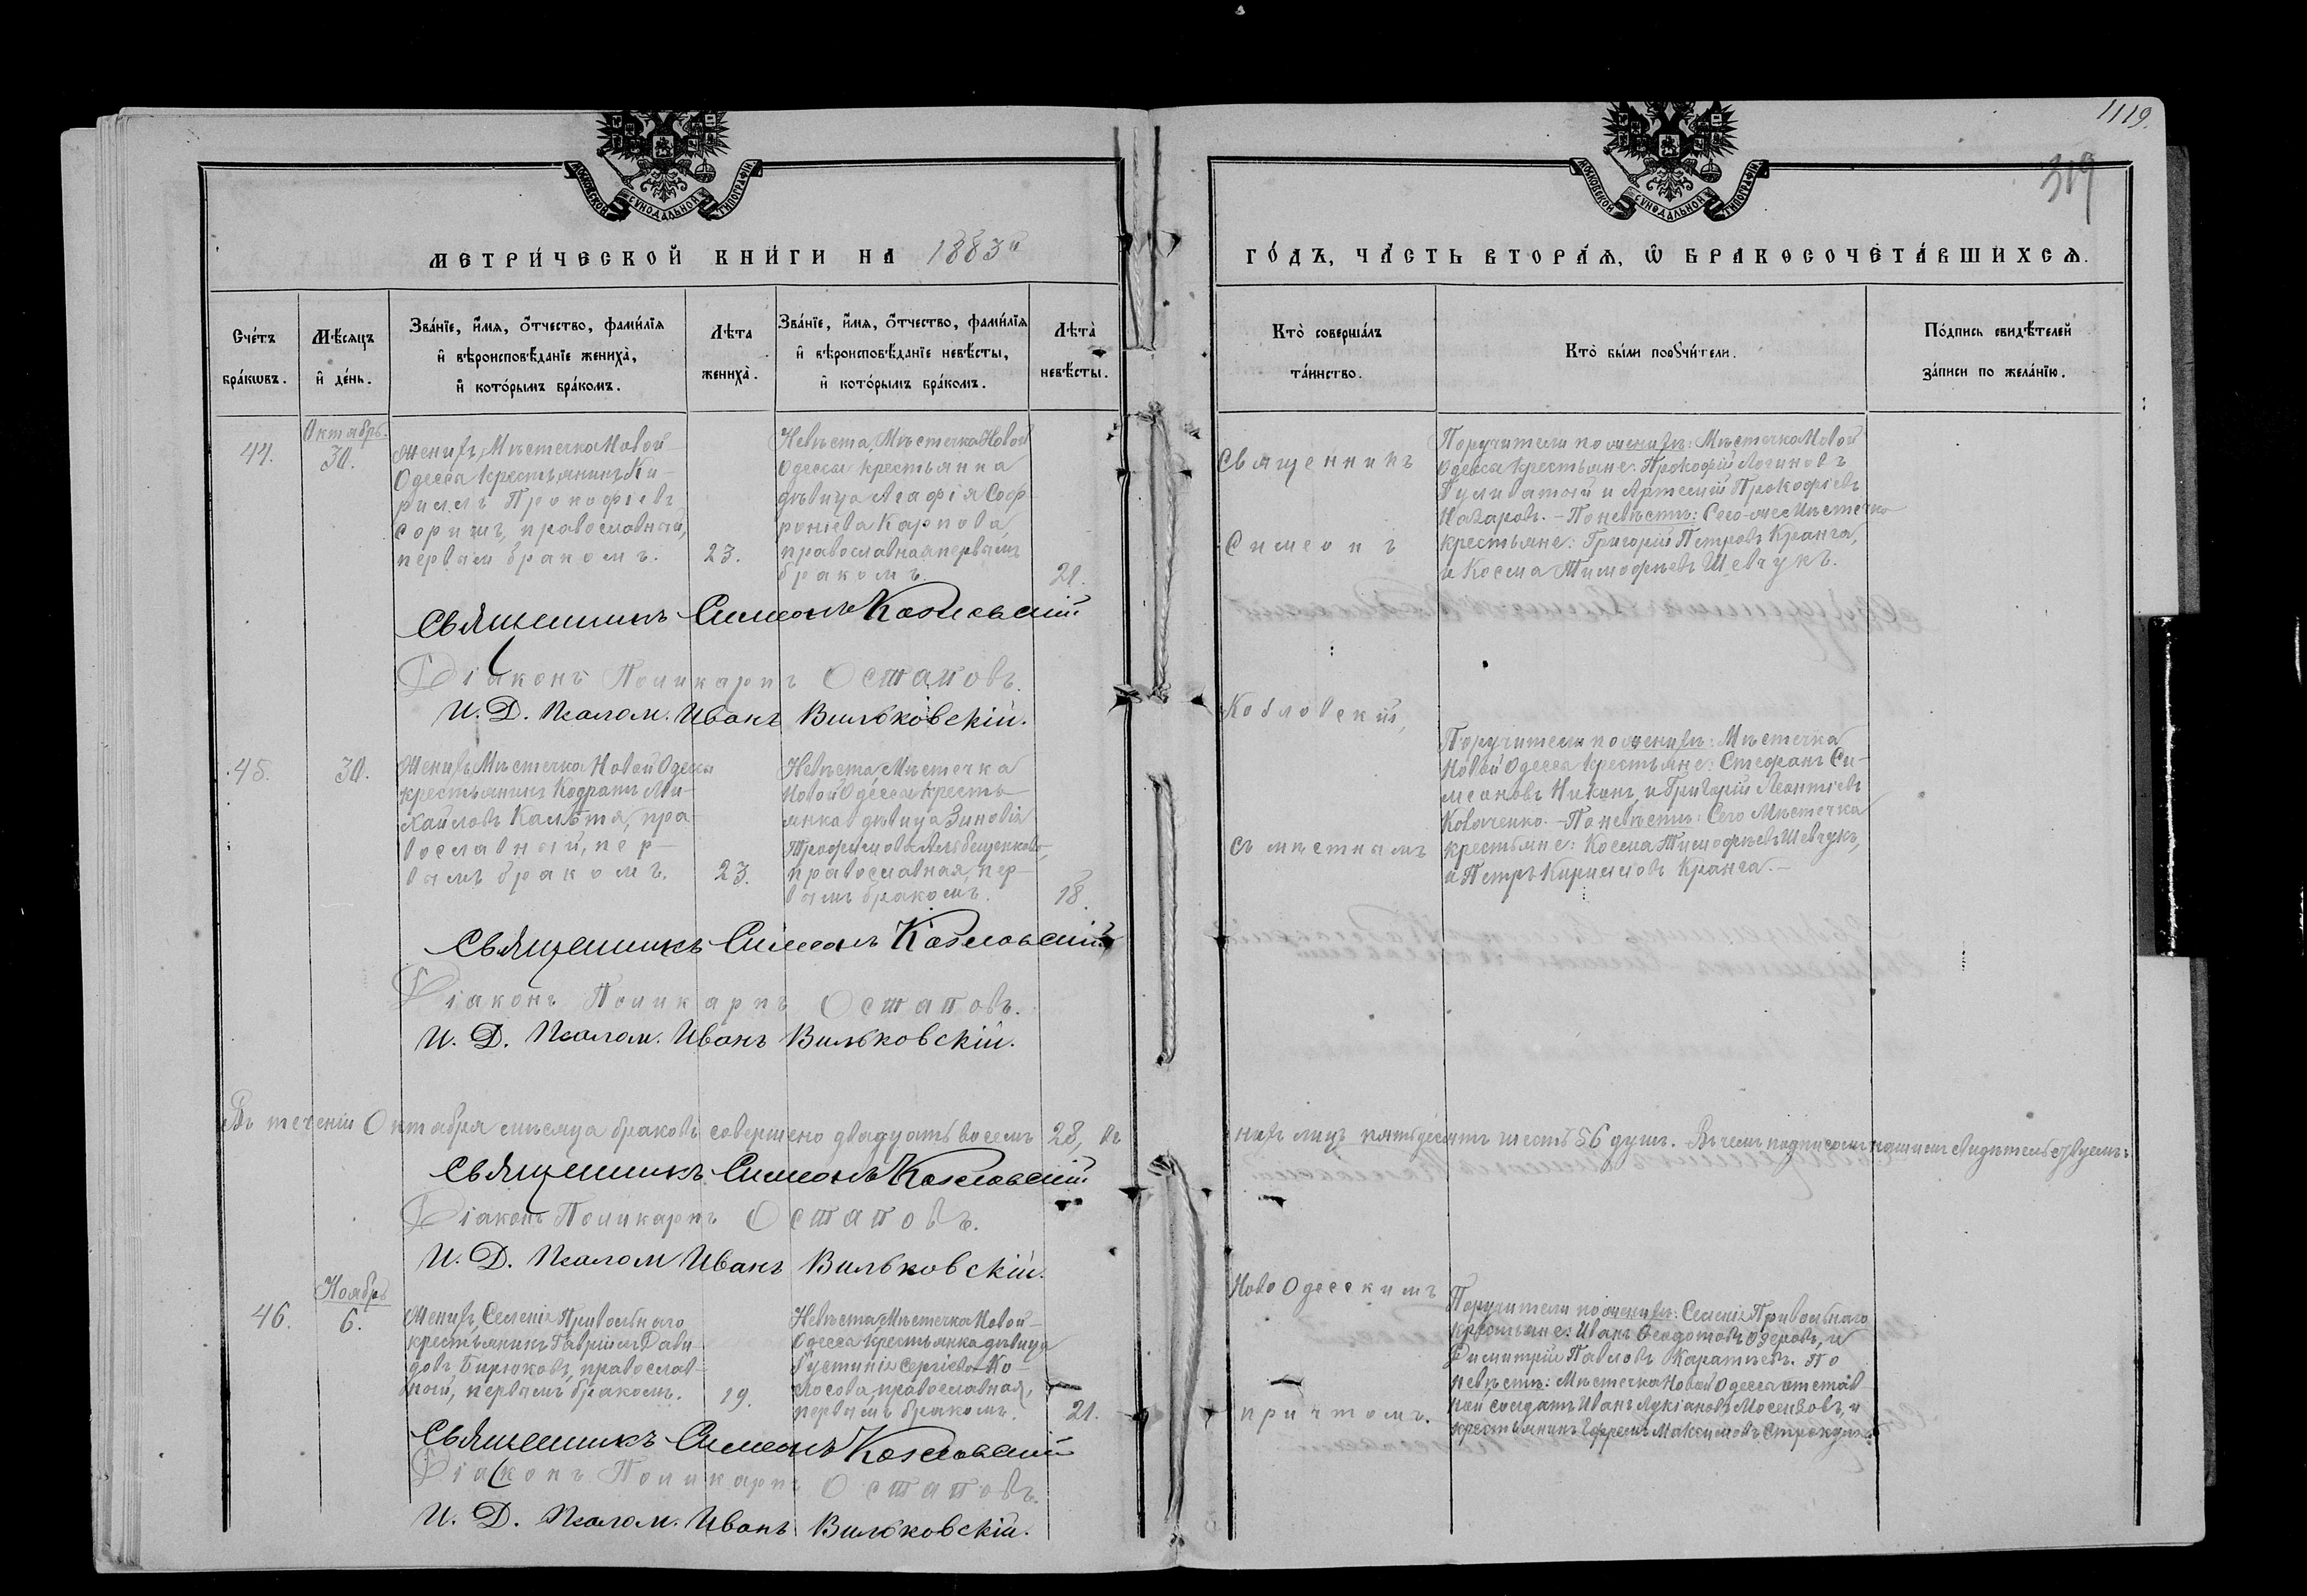 1119.
319
МОСКОВСКОЙ СѴНОДАЛЬНОЙ ТИПОГРАФІИ
МОСКОВСКОЙ СѴНОДАЛЬНОЙ ТИПОГРАФІИ
МЕТРИ́ЧЕСКОЙ КНИ́ГИ НА 1883й
ГО́ДЪ, ЧА́СТЬ ВТОРА́Ѧ, Ѽ БРАКОСОЧЕТА́ВШИХСѦ.
Сче́тъ бра́кѡвъ.
Мѣ́сѧцъ и҆ де́нь.
Зва́нїе, и҆́мѧ, ѻ҆́тчество, фами́лїѧ
и҆ вѣроисповѣ́данїе жениха̀,
и҆ кото́рымъ бра́комъ.
Лѣ́та жениха̀.
Зва́нїе, и҆́мѧ, ѻ҆́тчество, фами́лїѧ
и҆ вѣроисповѣ́данїе невѣ́сты,
и҆ кото́рымъ бра́комъ.
Лѣта̀ невѣ́сты.
Кто̀ соверша́лъ
та́инство.
Кто̀ бы́ли поꙋчи́тели.
По́дпись свидѣ́телей
за́писи по жела́нїю.
44.
Октябрь.
30.
Женихъ, Мѣстечка Новой
Одесса крестьянинъ Ки-
риллъ Прокофіевъ
Соричъ, православный,
первым бракомъ.
23.
Невѣста, Мѣстечка Новой
Одессы крестьянка
дѣвица Агафія Соф-
роніева Карпова,
православная первымъ
бракомъ.
21.
Священникъ
Симеонъ
Козловскій,
съ мѣстнымъ
Ново Одесскимъ
причтомъ.
Поручители по женихѣ: Мѣстечка Новой
Одесса крестьяне: Прокофій Логиновъ
Буливатый и Артемій Прокофіевъ
Назаровъ. – По невѣстѣ: Сего-же Мѣстечка
крестьяне: Григорій Петровъ Кранга,
и Косма Тимофѣевъ Шевчукъ.
Священникъ Симеонъ Козловскій
Діаконъ Поликарпъ Остаповъ.
И. Д. Псалом. Иванъ Вильковскій.
45.
30.
Женихъ, Мѣстечка Новой Одессы
крестьянинъ Кодратъ Ми-
хайловъ Калѣтя, пра-
вославный, пер-
вымъ бракомъ.
23.
Невѣста, Мѣстечка
Новой Одесса кресть-
янка дѣвица Зиновія
Трофимова
православная, пер-
вымъ бракомъ.
18.
Поручители по женихѣ: Мѣстечка
Новой Одесса крестьяне: Стефанъ Си-
меоновъ Никонъ, и Григорій Леонтіевъ
Коваченко. – По невѣстѣ: Сего Мѣстечка
крестьяне: Косма Тимофѣевъ Шевчукъ,
и Петръ Кирилловъ Кранга. –
Священникъ Симеонъ Козловскій
Діаконъ Поликарпъ Остаповъ.
И. Д. Псалом. Иванъ Вильковскій.
Въ теченіи Октября мѣсяца браковъ совершено двадцать восемь 28, въ
нихъ лицъ пятьдесятъ шесть 56 душъ. Въ чемъ подписомъ нашимъ свидѣтельствуемъ.
Священникъ Симеонъ Козловскій
Діаконъ Поликарпъ Остаповъ.
И. Д. Псалом Иванъ Вильковскій.
46.
Ноябрь
6.
Женихъ, Селенія Привольнаго
крестьянинъ Гавріилъ Дави-
довъ Бирюковъ, православ-
ный, первымъ бракомъ.
19.
Невѣста, Мѣстечка Новой-
Одесса крестьянка дѣвица
Густинія Сергіева Ко-
лосова, православная,
первымъ бракомъ.
21.
Поручители по женихѣ: Селенія Привольнаго
крестьяне: Иванъ Ѳеодотовъ Озеровъ, и
Димитрій Павловъ Каратѣевъ. По
невѣстѣ: Мѣстечка Новой Одесса отстав-
ной солдатъ Иванъ Лукіановъ Мосензовъ, и
крестьянинъ Ефремъ Максимовъ
Священникъ Симеонъ Козловскій
Діаконъ Поликарпъ Остаповъ.
И. Д. Псалом. Иванъ Вильковскій.